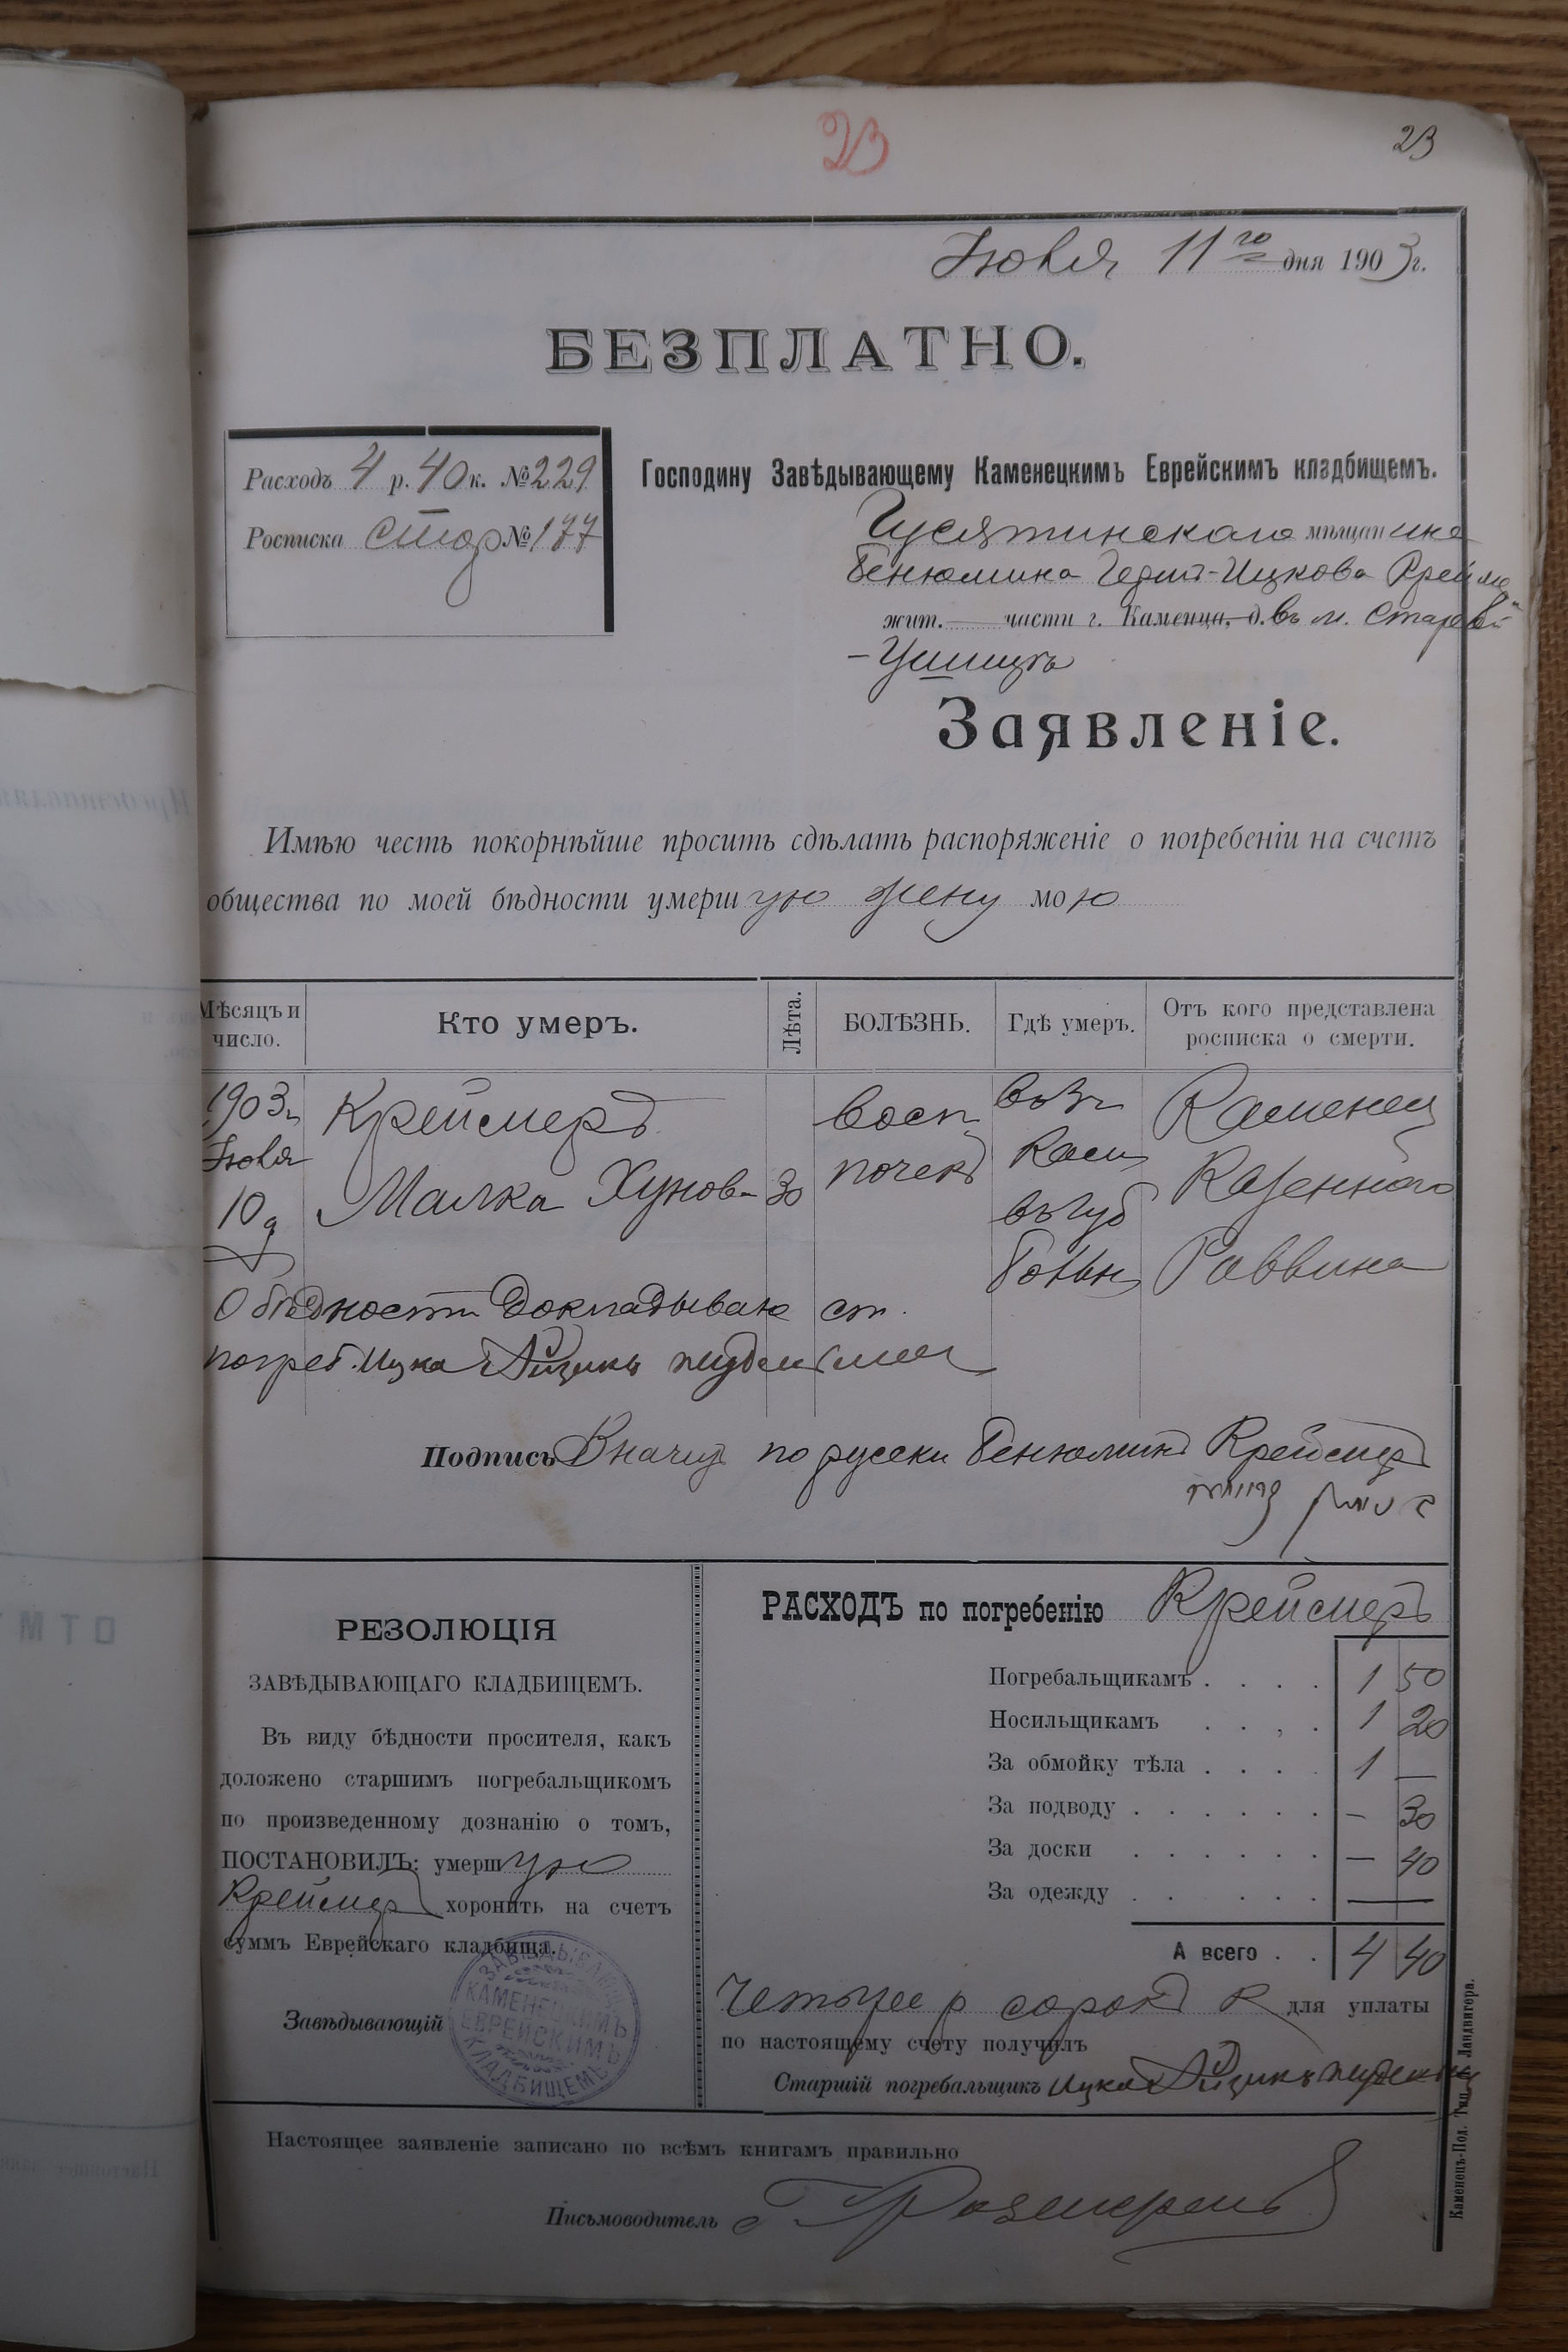 23
23
Іюля 11го дня 1903 г.
БЕЗПЛАТНО.
Расходъ 4 р. 40 к. № 229
Росписка стор № 177
Господину Завѣдывающему Каменецкимъ Еврейскимъ кладбищемъ.
Гусятинскаго мѣщанина
Бенюмина Герш-Ицкова Крейсме
жит. — части г. Каменца, д. въ м. Старой
-Ушицѣ
Заявленіе.
Имѣю честь покорнѣйше просить сдѣлать распоряженіе о погребеніи на счетъ
общества по моей бѣдности умершую жену мою
Мѣсяцъ и число.
Кто умеръ.
Лѣта.
БОЛѢЗНЬ.
Гдѣ умеръ.
Отъ кого представлена росписка о смерти.
1903 г Крейсмеръ Восп въ г Каменец
Іюля Малка Хунова 30 почекъ Кам Казеннаго
10 д въ губ Раввина
больн
О бѣдности Докладываю ст.
погреб. Ицка Айзикъ
Подпись Значу по русски Бенюминъ Крейсмеръ
РЕЗОЛЮЦІЯ
ЗАВѢДЫВАЮЩАГО КЛАДБИЩЕМЪ.
Въ виду бѣдности просителя, какъ
доложено старшимъ погребальщикомъ
по произведенному дознанію о томъ,
ПОСТАНОВИЛЪ: умершую
Крейсмер хоронить на счетъ
суммъ Еврейскаго кладбища.
Завѣдывающій
ЗАВѢДЫВАЮЩ
КАМЕНЕЦКИМЪ
ЕВРЕЙСКИМЪ
КЛАДБИЩЕМЪ
РАСХОДЪ по погребенію Крейсмеръ
Погребальщикамъ . . . . 1 50
Носильщикамъ . . , . 1 20
За обмойку тѣла . . . . 1 —
За подводу . . . . . . — 30
За доски . . . . . . — 40
За одежду . . . . . . —
А всего . . 4 40
Четыре р сорокъ к для уплаты
по настоящему счету получилъ
Старшій погребальщикъ Ицка Айзикъ
Настоящее заявленіе записано по всѣмъ книгамъ правильно
Письмоводитель
Каменецъ-Под. Тип. Ландвигера.